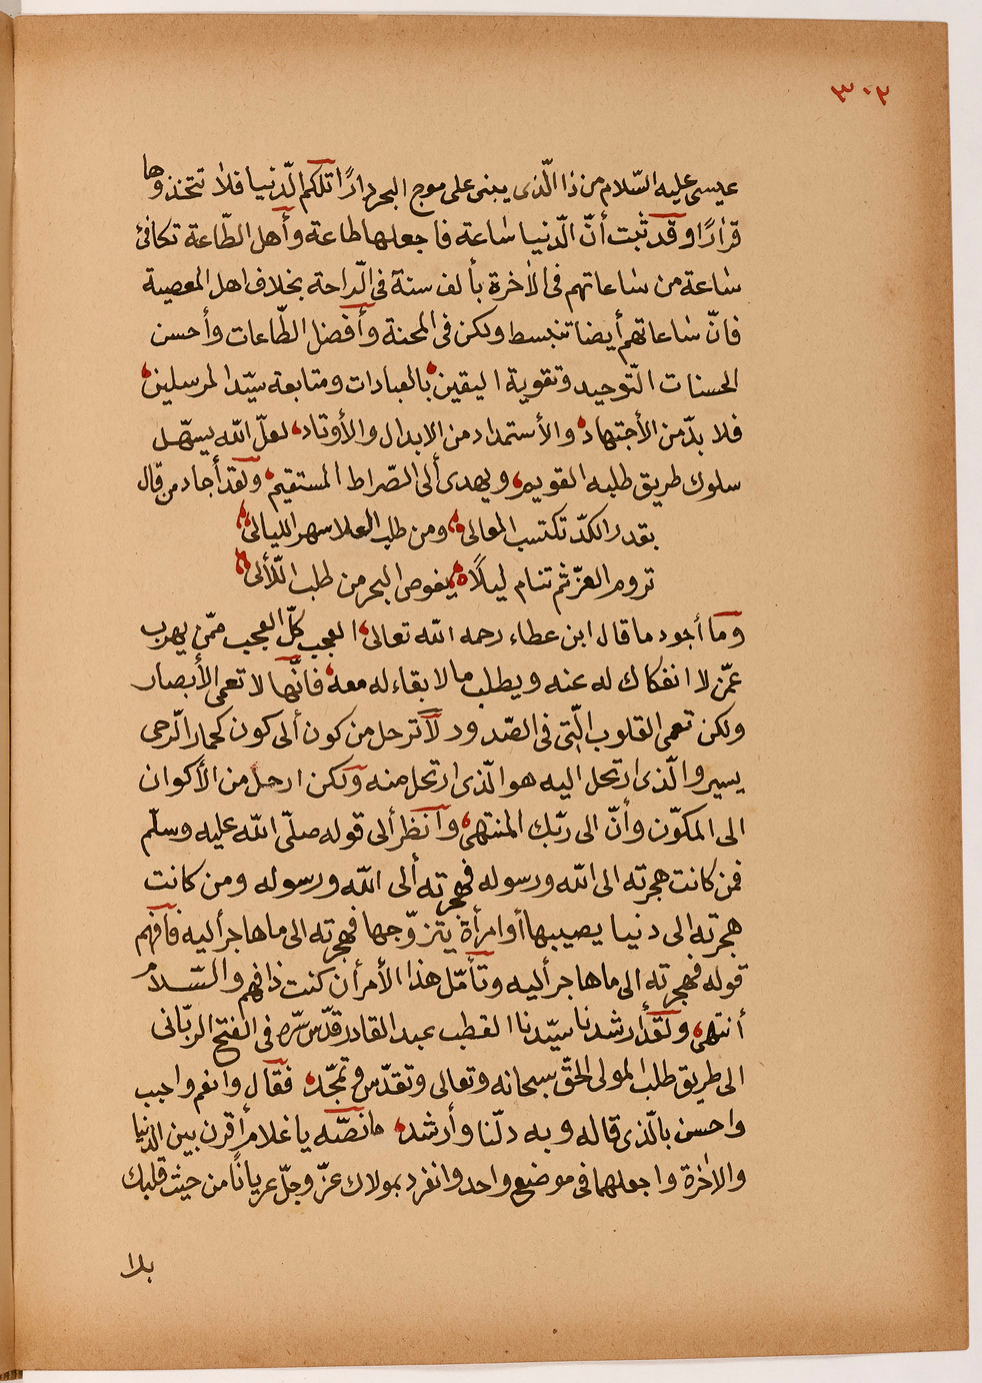 ٣٠٢
عيسى عليه السّلام من ذا الّذى يبنى على موج البحر دارًا تلكم الّدنيا فلا تتخذوها
قرارًا وقد ثبت أنّ الّدنيا ساعة فاجعلها طاعة وأهل الطّاعة تكافئ
ساعة من ساعاتهم فى الأخرة بألف سنة فى الّراحة بخلاف اهل المعصية
فانّ ساعاتهم أيضا تنبسط ولكن فى المحنة وأفضل الطّاعات وأحسن
الحسنات التّوحيد وتقوية اليقين بالعبادات ومتابعة سيّد المرسلين
فلا بدّ من الأجتهاد والأستمداد من الابدال والأوتاد لعلّ اللّه يسهّل
سلوك طريق طلبه القويم ويهدى ألى الصّراط المستقيم ولقد أجاد من قال
بقدر الكدّ تكتسب المعالى ومن طلب العلا سهر الليالى
تروم العزّ ثم تنام ليلًا يغوص البحر من طلب اللّألى
وما أجود ما قال ابن عطاء رحمه اللّه تعالى العجب كلّ العجب ممّن يهرب
عمّن لا انفكاك له عنه ويطلب ما لا بقاء له معه فانّها لا تعمى الأبصار
ولكن تعمى القلوب الّتى فى الصّدور لا ترحل من كون ألى كون كحمار الّرحى
يسير والّذى ارتحل اليه هو الّذى ارتحل منه ولكن ارحل من الأكوان
الى المكوّن وأنّ الى ربّك المنتهى وانظر ألى قوله صلّى اللّه عليه وسلّم
فمن كانت هجرته الى اللّه ورسوله فهجرته ألى اللّه ورسوله ومن كانت
هجرته الى دنيا يصيبها أوامرأة يتزوّجها فهجرته الى ما هاجر أليه فافهم
قوله فهجرته الى ما هاجر أليه وتأمّل هذا الأمر أن كنت ذا فهم والسّلام
أنتهى ولقد أرشدنا سيّدنا القطب عبد القادر قدّس سرّه فى الفتح الربّانى
الى طريق طلب المولى الحقّ سبحانه وتعالى وتقدّس وتمجّد فقال وانعم واجب
واحسن بالّذى قاله وبه دلّنا وأرشد مانصّه يا غلام أقرن بين الدّنيا
والاخرة واجعلهما فى موضع واحد وانفرد بمولاك عزّ وجلّ عريانًا من حيث قلبك
بلا